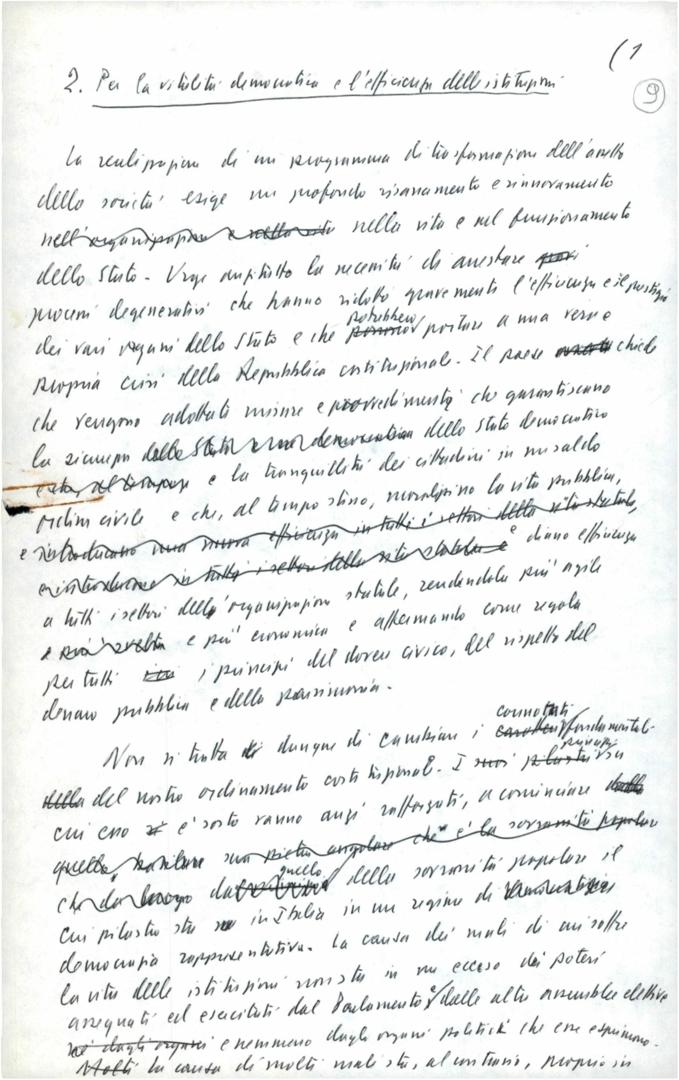 (1
9
2. Per la vitalità democratica e l'efficienza delle istituzioni
La realizzazione di un programma di trasformazione dell'assetto
della società esige un profondo risanamento e rinnovamento
nell'organizzazione e nella vita nella vita e nel funzionamento
dello Stato. Urge anzitutto la necessità di arrestare
processi degenerativi che hanno ridotto gravemente l'efficienza e il prestigio
dei vari organi dello Stato e che potrebbero portare a una vera e
propria crisi della Repubblica costituzionale. Il paese chiede
che vengano adottati misure e provvedimenti che garantiscano
la sicurezza dello Stato democratico
e la tranquillità dei cittadini in un saldo
ordine civile e che, al tempo stesso, moralizzino la vita pubblica,
e introducano una nuova efficienza in tutti i settori della vita statale,
in tutti i settori della vita statale e diano efficienza
a tutti i settori dell'organizzazione statale, rendendola più agile
e più svelta e più economica e affermando come regola
per tutti i principi del dovere civico, del rispetto del
denaro pubblico e della parsimonia.
Non si tratta dunque di cambiare i connotati fondamentali
del nostro ordinamento costituzionale. I suoi pilastri principi su
cui esso è sorto vanno anzi rafforzati, a cominciare dalla
quella pietra angolare che è la sovranità popolare
da quello della sovranità popolare il
cui pilastro sta in Italia in un regime di
democrazia rappresentativa. La causa dei mali di cui soffre
la vita delle istituzioni non sta in un eccesso dei poteri
assegnati ed esercitati dal Parlamento e dalle altre assemblee elettive
né dagli organi e nemmeno dagli organi politici che esse esprimono.
Molti la causa di molti mali sta, al contrario, proprio in